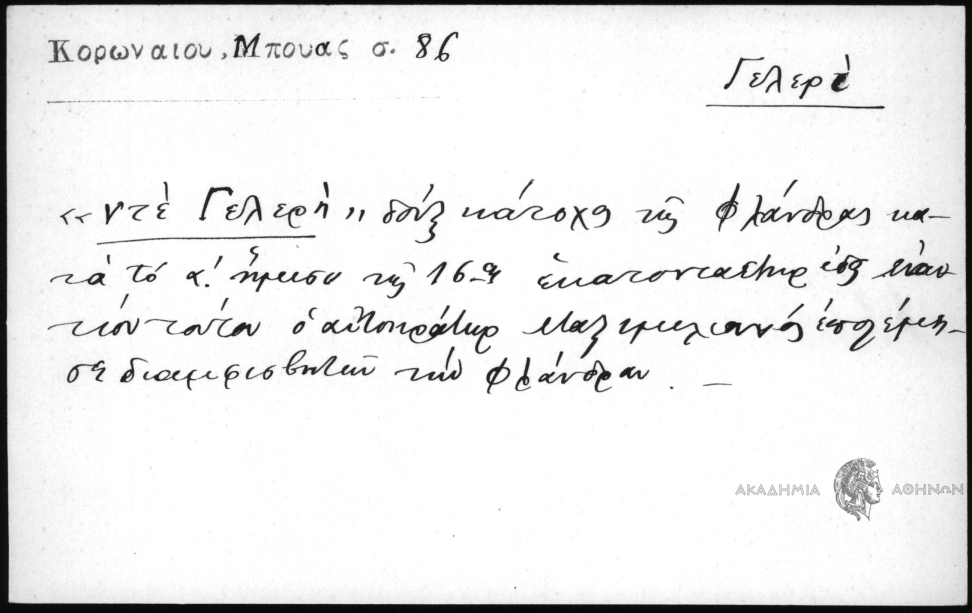 Κορωναιου, Μπουας σ. 86
Γελερὲ
«ντὲ Γελερὴ» δούξ κάτοχος τῆς Φλάνδρας κα-
τὰ τὸ α΄. ἥμισυ τῆς 16ης ἑκατονταετηρίδος ἐναν
τίον τούτου ὁ αὐτοκράτωρ Μαξιμιλιανός ἐπολέμη-
σε διαμφισβητῶν τήν Φλάνδραν. —
ΑΚΑΔΗΜΙΑ ΑΘΗΝΩΝ